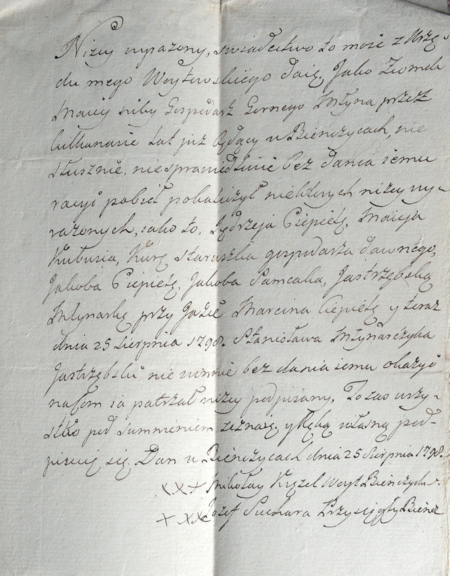 Niżey wyrażony, świadectwo to moie z Urzę-
du mego Woytowskiego daię, Jako
Maciey Gospodarz Gornego Młyna przez
kilkanaście lat już będący w Bieńczycach, nie
słusznie, niesprawiedliwie bez dania iemu
racyi pobił pokaliczył niektorych niżey wy-
rażonych, iako to, Jędrzeja Ciepielę, Macieja
Kubusia, staruszka gospodarza dawnego,
Jakoba Ciepielę, Jakoba Jastrzębską
Młynarkę przy Marcina Ciepielę y teraz
dnia 25 Sierpnia 1798. Stanisława Młynarczyka
Jastrzębski niewinnie bez dania iemu okazyi
na com ia patrzał niżey podpisany. To zaś wszy-
stko pod sumnieniem zeznaię, y Ręką własną pod-
pisuię się. Dan w Bieńczycach dnia 25 Sierpnia 1798.
xx+ Mikołay Kyzel Woyt Bieńczycki.
+xx Jozef Suchara Przysięgły Bieńcz